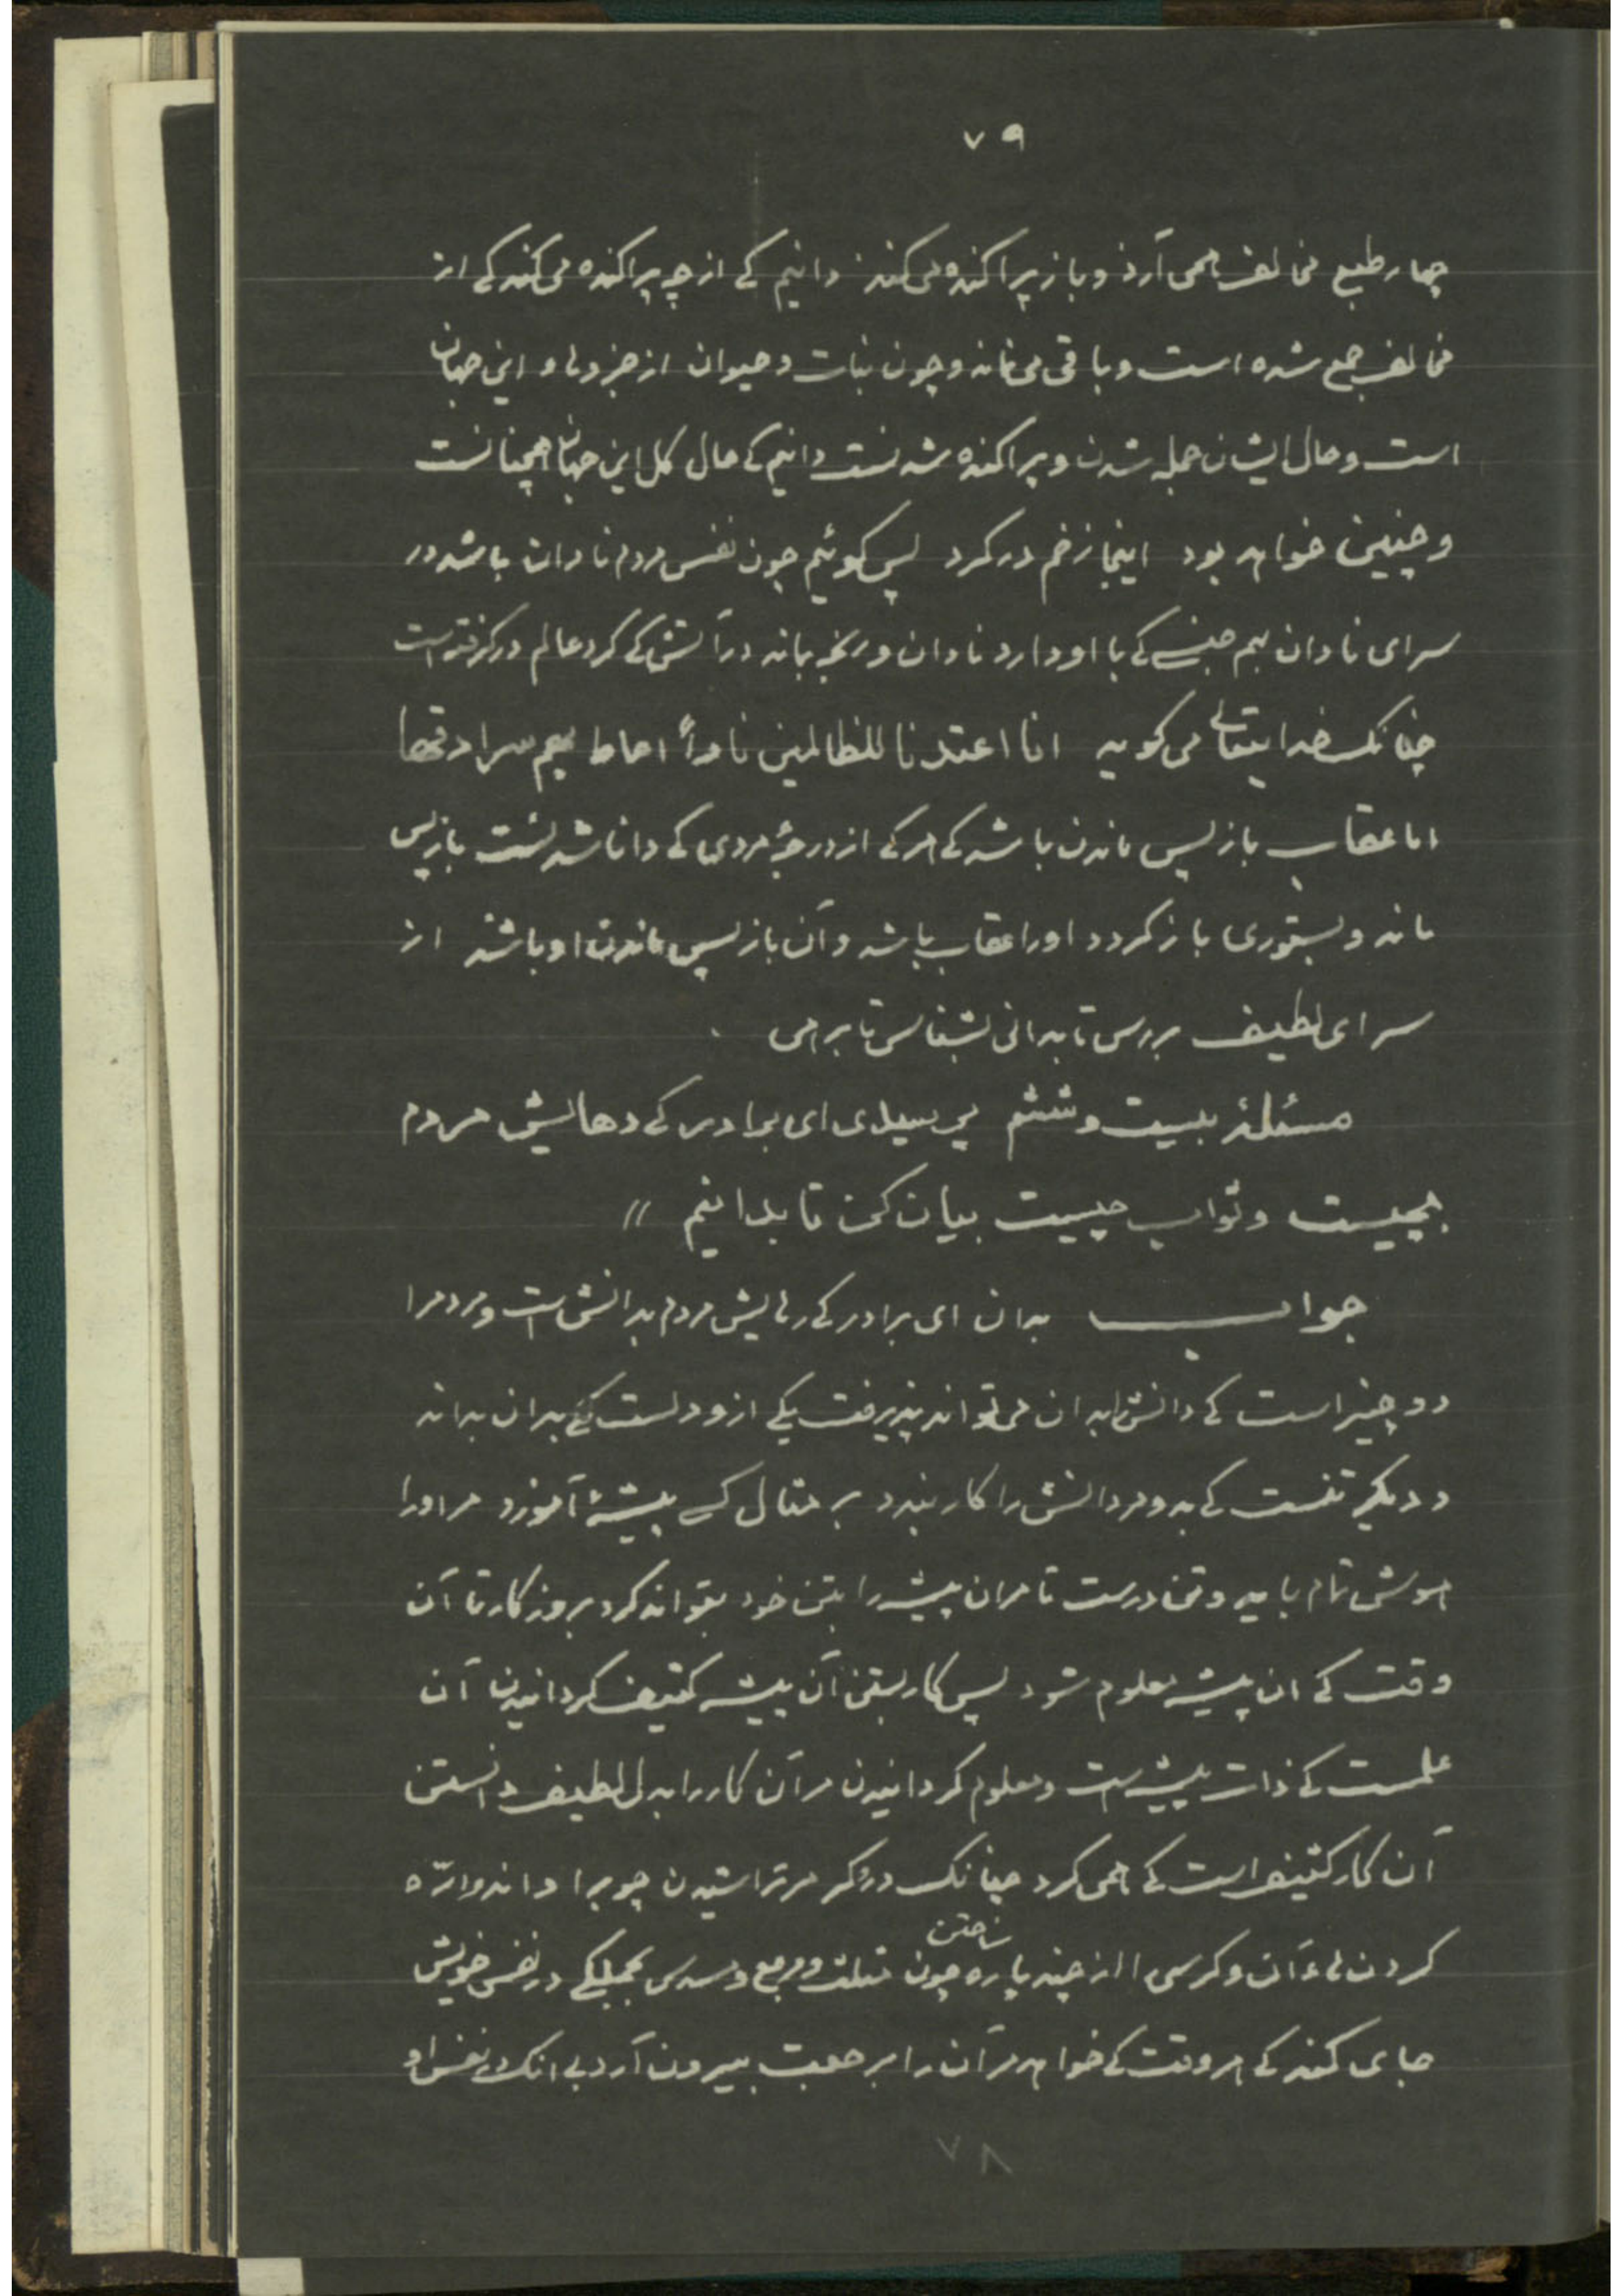 ۷۹
چهار طبع مخالف همی آرد و باز پراکنده می‌کند دانیم کے از چه پراکنده می‌کند کے از
مخالف جمع شده است و باقی می‌ماند و چون نبات و حیوان از جزوهاء این جهان
است و حال ایشان جمله شدن و پراکنده شدنست دانیم کے حال کل این جهان همچنانست
و چنین خواهد بود اینجا زخم در کرد پس کوئیم چون نفس مردم نادان باشد در
سرای نادان بهم جنسے کے با او دارد نادان و رنجه بماند در آتش کے کرد عالم در کرفته است
چنانک خدایتعالی می‌کوید انا اعتدنا للظالمین ناراً احاط بهم سرادقها
اما عقاب باز پس ماندن باشد کے هر کے از درجۀ مردمی کے دانا شدنست باز پس
ماند و بستوری باز کردد او را عقاب باشد و آن باز پس ماندن او باشد از
سرای لطیف بررس تا بدانی بشناس تا برهی
مسئلۀ بیست و ششم پرسیدی ای برادر کے رهایش مردم
بچیست و ثواب چیست بیان کن تا بدانیم //
جواب بدان ای برادر کے رهایش مردم بدانش است و مردم را
دو چیز است کے دانش بدان می‌تواند پذیرفت یکے ازو دلست کے بدان بداند
و دیکر تنست کے بدو مر دانش را کار بندد بر مثال کسے پیشۀ آموزد مر او را
هوش تمام باید و تن درست تا مر ان پیشه را بتن خود بتواند کرد بروزکار تا آن
وقت کے ان پیشه معلوم شود پس کار بستن آن پیشه کثیف کردانیدن آن
علمست کے ذات پیشه است و معلوم کردانیدن مر آن کار را بدل لطیف دانستن
آن کار کثیف است کے همی کرد چنانک درؤکر مر تراشیدن چوبرا داند و ارّه
کردن مر آن و کرسی را از چند پاره چون ساختن مثلث و مربع و مسدس بجملکے در نفس خویش
جای کند کے هر وقت کے خواهد مر آن را بر چوب بیرون آرد بے انک نفس او
۷۸